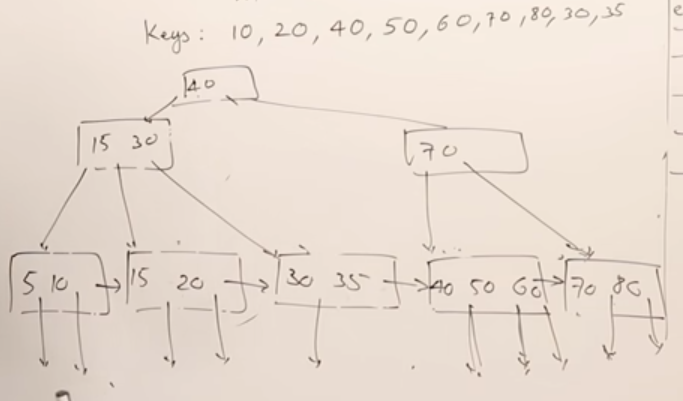 Keys: 10, 20, 40, 50, 60, 70, 80, 30, 35
40
15 30
70
5 10
15 20
30 35
40 50 60
70 80